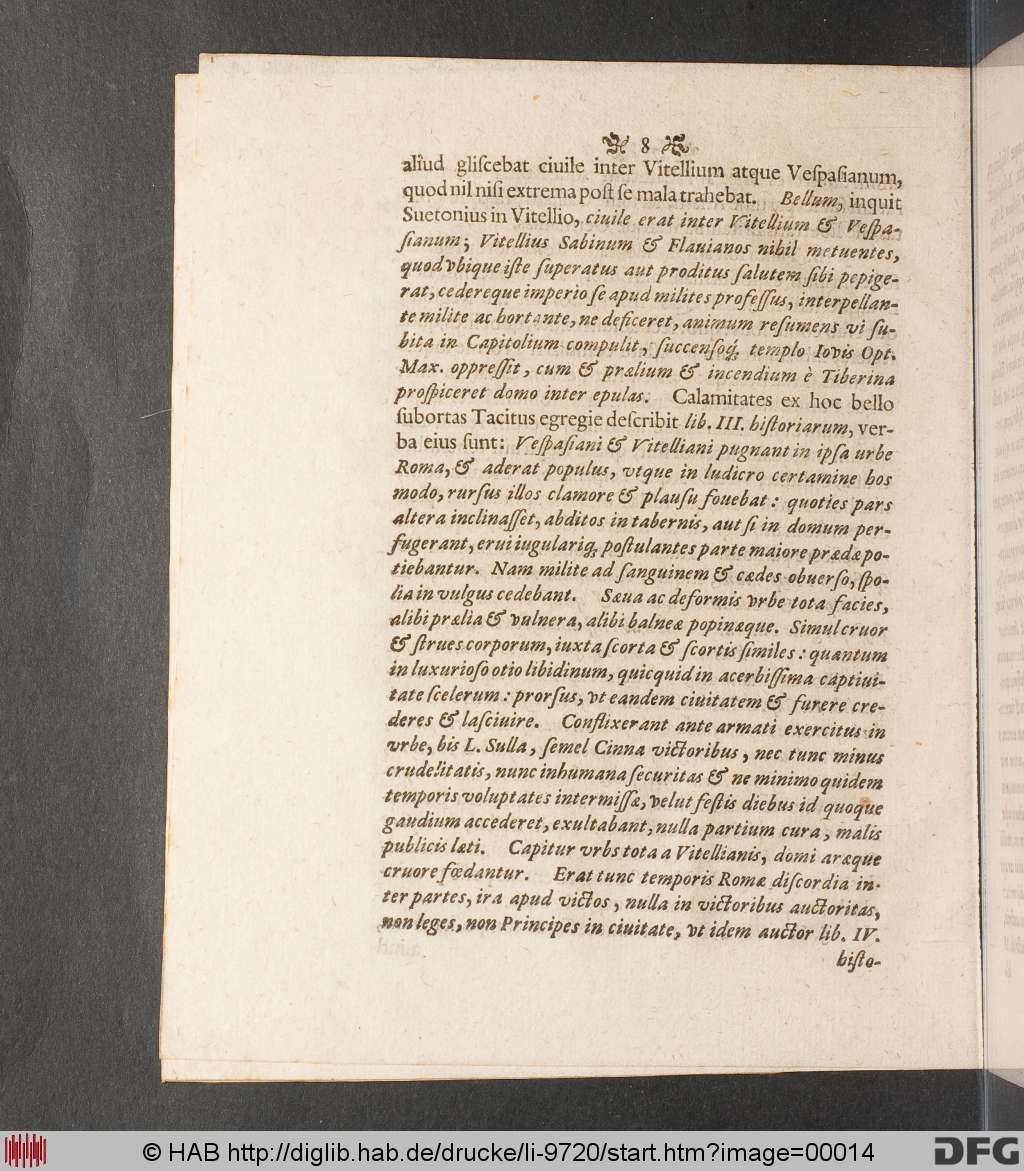 8
aliud gliſcebat ciuile inter Vitellium atque Veſpaſianum,
quod nil niſi extrema poſt ſe mala trahebat. Bellum, inquit
Suetonius in Vitellio, ciuile erat inter Vitellium & Veſpa-
ſianum; Vitellius Sabinum & Flauianos nihil metuentes,
quod vbique iſte ſuperatus aut proditus ſalutem ſibi pepige-
rat, cedereque imperio ſe apud milites profeſſus, interpellan-
te milite ac hortante, ne deficeret, animum reſumens vi ſu-
bita in Capitolium compulit, ſuccenſoq́; templo Iovis Opt.
Max. oppreſſit, cum & prælium & incendium è Tiberina
proſpiceret domo inter epulas. Calamitates ex hoc bello
ſubortas Tacitus egregie deſcribit lib. III. hiſtoriarum, ver-
ba eius ſunt: Veſpaſiani & Vitelliani pugnant in ipſa urbe
Roma, & aderat populus, vtque in ludicro certamine hos
modo, rurſus illos clamore & plauſu fouebat: quoties pars
altera inclinaſſet, abditos in tabernis, aut ſi in domum per-
fugerant, erui iugulariq; poſtulantes parte maiore prædæ po-
tiebantur. Nam milite ad ſanguinem & cædes obuerſo, ſpo-
lia in vulgus cedebant. Sæua ac deformis vrbe tota facies,
alibi prælia & vulnera, alibi balneæ popinæque. Simul cruor
& ſtrues corporum, iuxta ſcorta & ſcortis ſimiles: quantum
in luxurioſo otio libidinum, quicquid in acerbiſſima captiui-
tate ſcelerum: prorſus, vt eandem ciuitatem & furere cre-
deres & laſciuire. Conflixerant ante armati exercitus in
vrbe, bis L. Sulla, ſemel Cinna victoribus, nec tunc minus
crudelitatis, nunc inhumana ſecuritas & ne minimo quidem
temporis voluptates intermiſſæ, velut feſtis diebus id quoque
gaudium accederet, exultabant, nulla partium cura, malis
publicis læti. Capitur vrbs tota a Vitellianis, domi aræque
cruore fœdantur. Erat tunc temporis Romæ diſcordia in-
ter partes, ira apud victos, nulla in victoribus auctoritas,
non leges, non Principes in ciuitate, vt idem auctor lib. IV.
hiſto-
© HAB http://diglib.hab.de/drucke/li-9720/start.htm?image=00014
DFG